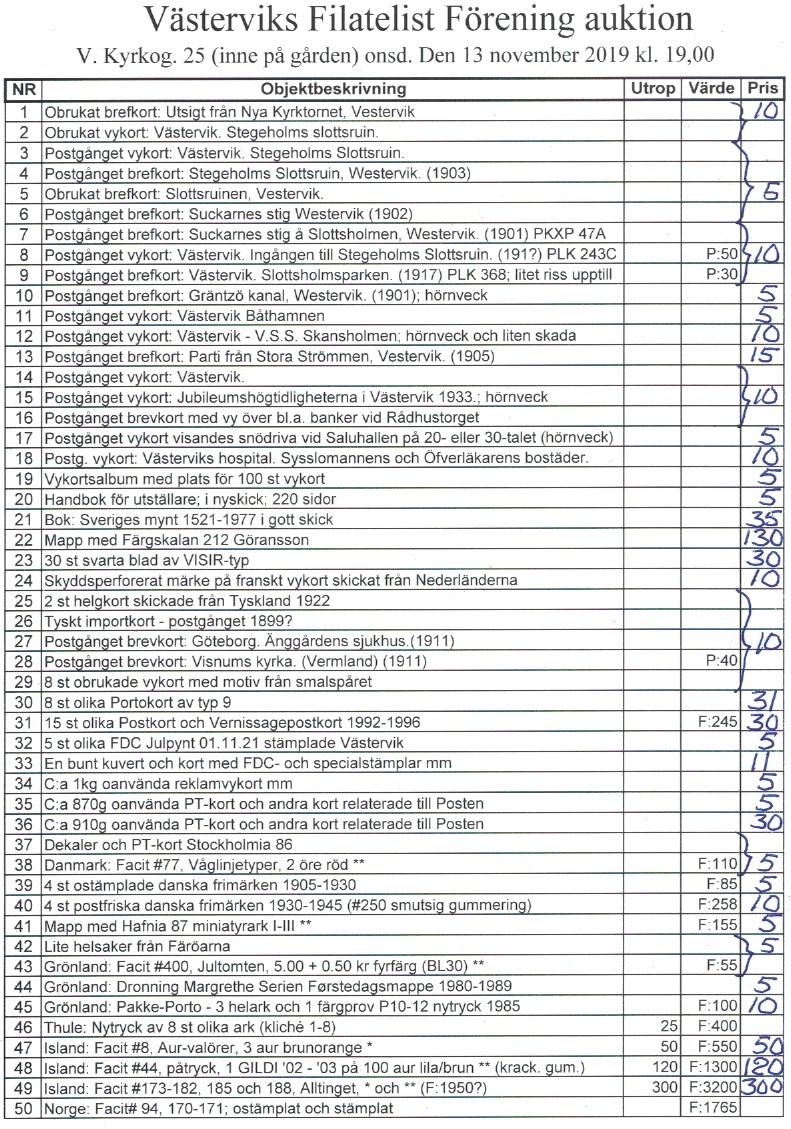 Västerviks Filatelist Förening auktion
V. Kyrkog. 25 (inne på gården) onsd. Den 13 november 2019 kl. 19,00
NR Objektbeskrivning Utrop Värde Pris
1 Obrukat brefkort: Utsigt från Nya Kyrktornet, Vestervik 10
2 Obrukat vykort: Västervik. Stegeholms slottsruin.
3 Postgånget vykort: Västervik. Stegeholms Slottsruin.
4 Postgånget brefkort: Stegeholms Slottsruin, Westervik. (1903)
5 Obrukat brefkort: Slottsruinen, Vestervik. 5
6 Postgånget brefkort: Suckarnes stig Westervik (1902)
7 Postgånget brefkort: Suckarnes stig å Slottsholmen, Westervik. (1901) PKXP 47A
8 Postgånget vykort: Västervik. Ingången till Stegeholms Slottsruin. (191?) PLK 243C P:50 10
9 Postgånget brefkort: Västervik. Slottsholmsparken. (1917) PLK 368; litet riss upptill P:30
10 Postgånget brefkort: Gräntzö kanal, Westervik. (1901); hörnveck 5
11 Postgånget vykort: Västervik Båthamnen 5
12 Postgånget vykort: Västervik - V.S.S. Skansholmen; hörnveck och liten skada 10
13 Postgånget brefkort: Parti från Stora Strömmen, Vestervik. (1905) 15
14 Postgånget vykort: Västervik.
15 Postgånget vykort: Jubileumshögtidligheterna i Västervik 1933.; hörnveck 10
16 Postgånget brevkort med vy över bl.a. banker vid Rådhustorget
17 Postgånget vykort visandes snödriva vid Saluhallen på 20- eller 30-talet (hörnveck) 5
18 Postg. vykort: Västerviks hospital. Sysslomannens och Öfverläkarens bostäder. 10
19 Vykortsalbum med plats för 100 st vykort 5
20 Handbok för utställare; i nyskick; 220 sidor 5
21 Bok: Sveriges mynt 1521-1977 i gott skick 35
22 Mapp med Färgskalan 212 Göransson 130
23 30 st svarta blad av VISIR-typ 30
24 Skyddsperforerat märke på franskt vykort skickat från Nederländerna 10
25 2 st helgkort skickade från Tyskland 1922
26 Tyskt importkort - postgånget 1899?
27 Postgånget brevkort: Göteborg. Änggårdens sjukhus.(1911) 10
28 Postgånget brevkort: Visnums kyrka. (Vermland) (1911) P:40
29 8 st obrukade vykort med motiv från smalspåret
30 8 st olika Portokort av typ 9 31
31 15 st olika Postkort och Vernissagepostkort 1992-1996 F:245 30
32 5 st olika FDC Julpynt 01.11.21 stämplade Västervik 5
33 En bunt kuvert och kort med FDC- och specialstämplar mm 11
34 C:a 1kg oanvända reklamvykort mm 5
35 C:a 870g oanvända PT-kort och andra kort relaterade till Posten 5
36 C:a 910g oanvända PT-kort och andra kort relaterade till Posten 30
37 Dekaler och PT-kort Stockholmia 86
38 Danmark: Facit #77, Våglinjetyper, 2 öre röd ** F:110 5
39 4 st ostämplade danska frimärken 1905-1930 F:85 5
40 4 st postfriska danska frimärken 1930-1945 (#250 smutsig gummering) F:258 10
41 Mapp med Hafnia 87 miniatyrark I-III ** F:155 5
42 Lite helsaker från Färöarna 5
43 Grönland: Facit #400, Jultomten, 5.00 + 0.50 kr fyrfärg (BL30) ** F:55
44 Grönland: Dronning Margrethe Serien Førstedagsmappe 1980-1989 5
45 Grönland: Pakke-Porto - 3 helark och 1 färgprov P10-12 nytryck 1985 F:100 10
46 Thule: Nytryck av 8 st olika ark (kliché 1-8) 25 F:400
47 Island: Facit #8, Aur-valörer, 3 aur brunorange * 50 F:550 50
48 Island: Facit #44, påtryck, 1 GILDI '02 - '03 på 100 aur lila/brun ** (krack. gum.) 120 F:1300 120
49 Island: Facit #173-182, 185 och 188, Alltinget, * och ** (F:1950?) 300 F:3200 300
50 Norge: Facit# 94, 170-171; ostämplat och stämplat F:1765